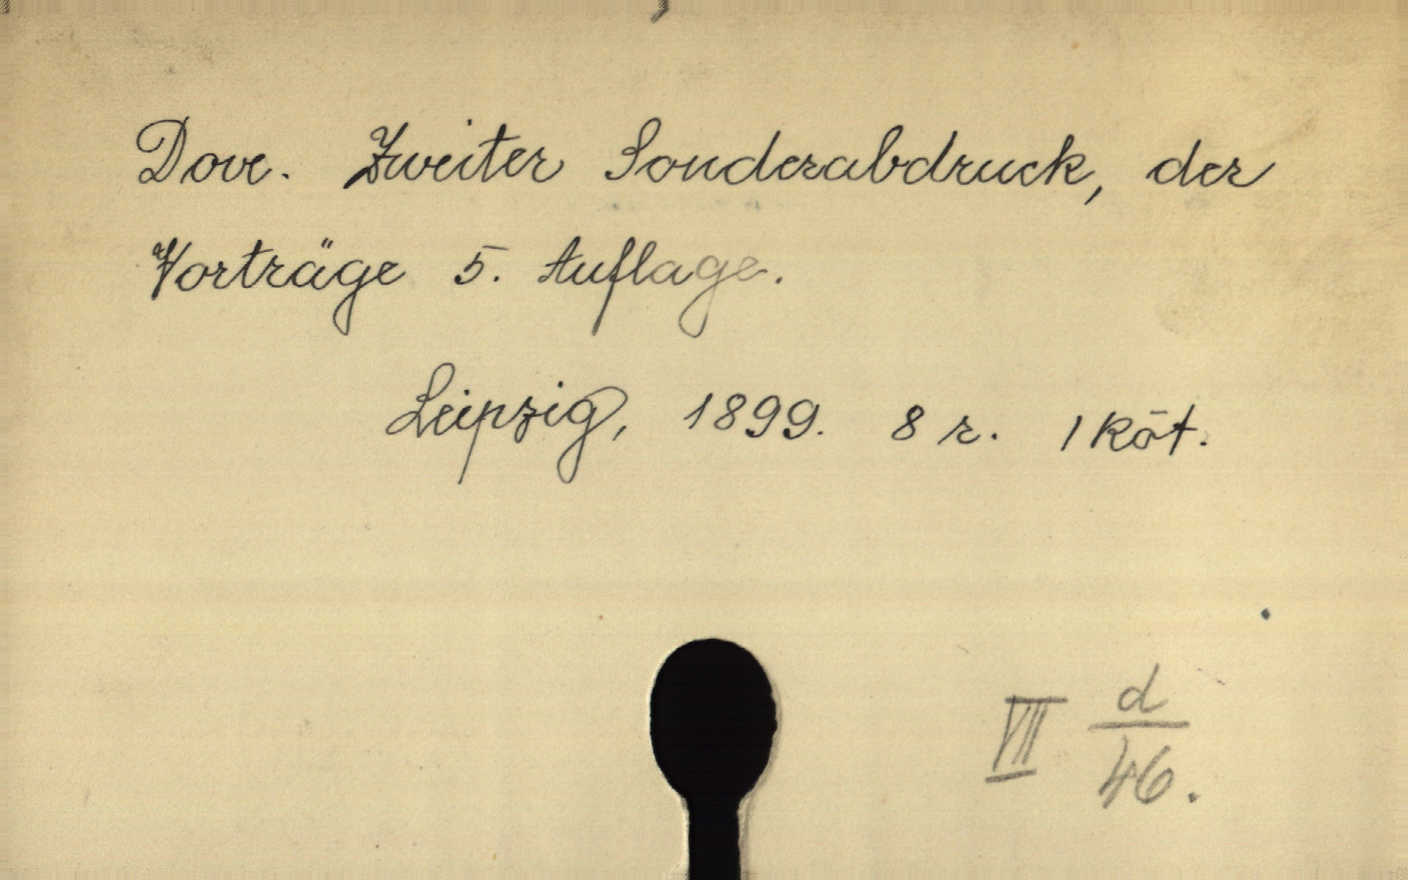 Dove. Zweiter Sonderabdruck, der
Vorträge 5. Auflage.
Leipzig, 1899. 8 r. 1 köt.
VII d/46.